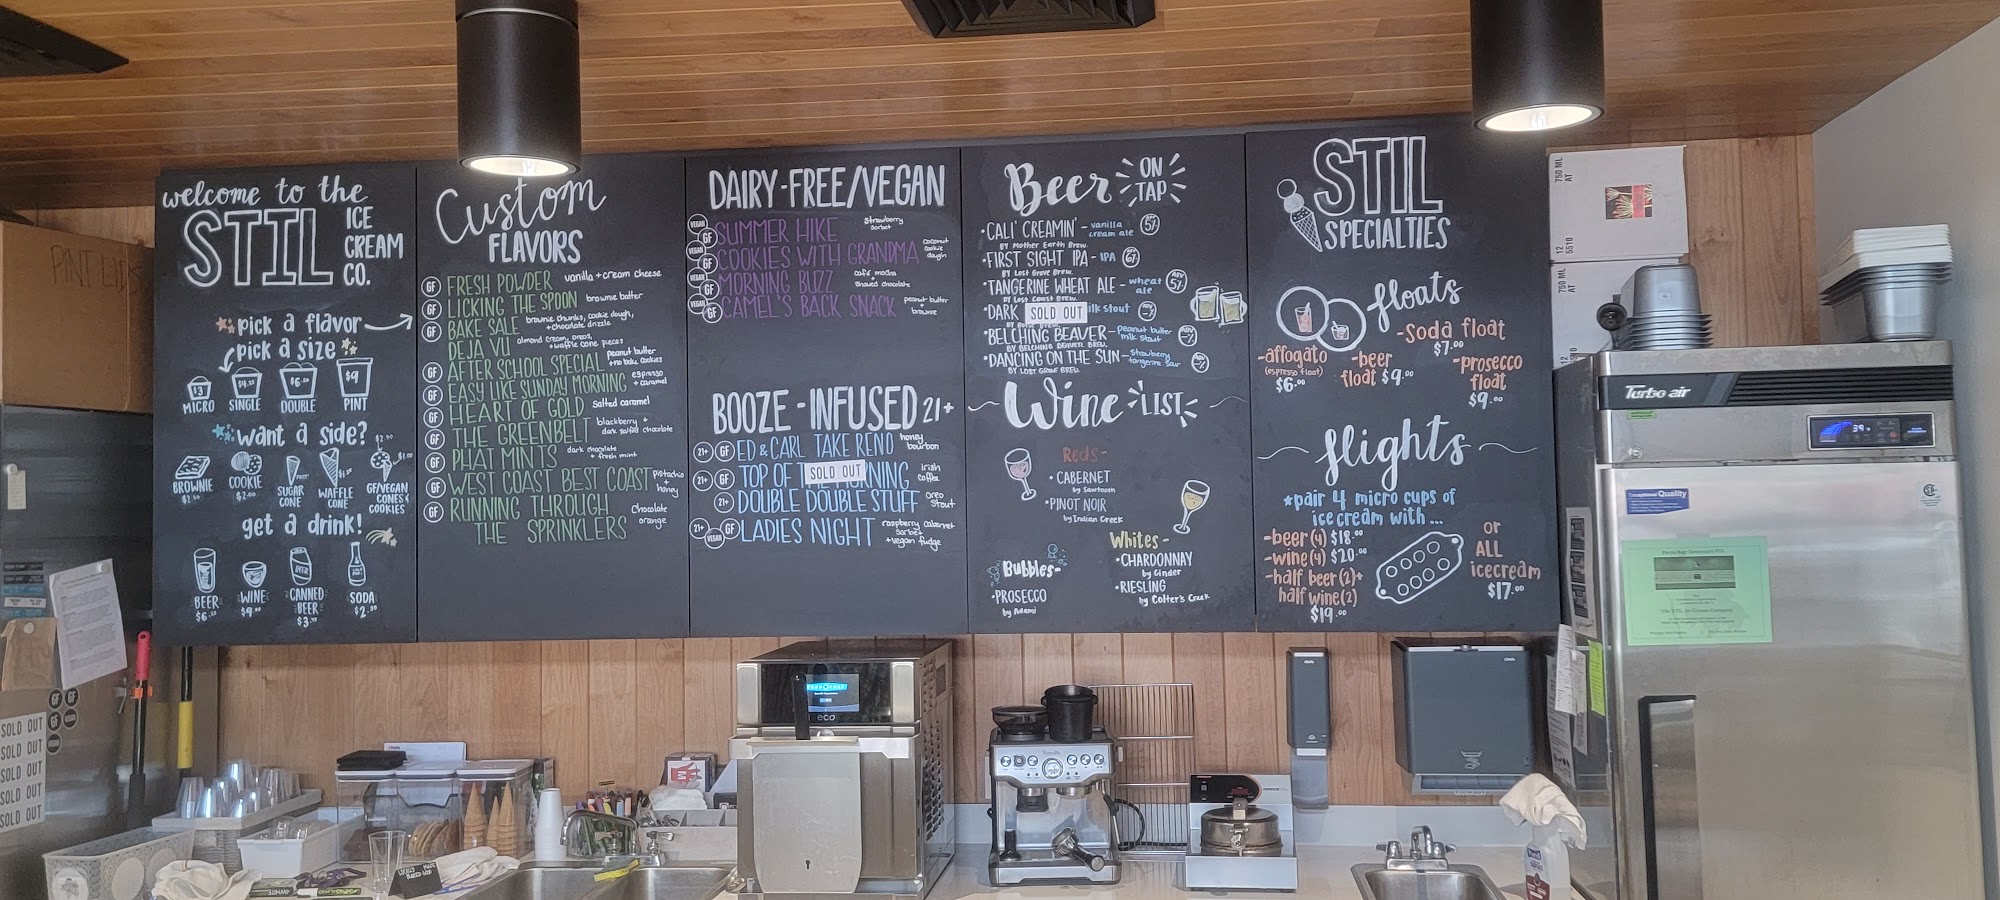 welcome to the
STIL
ICE
CREAM
CO.
pick a flavor
pick a size
$3
MICRO
SINGLE
$6.00
DOUBLE
$9
PINT
want a side?
BROWNIE
COOKIE
$2.00
SUGAR
CONE
WAFFLE
CONE
$2.50
$1.00
GF/VEGAN
CONES
COOKIES
get a drink!
BEER
WINE
$9.00
CANNED
BEER
SODA
Custom
FLAVORS
GF FRESH POWDER vanilla + cream cheese
GF LICKING THE SPOON brownie batter
GF BAKE SALE brownie chunks, cookie dough,
+ chocolate drizzle
DEJA VU almond cream, oreos,
+ waffle cone pieces
GF AFTER SCHOOL SPECIAL peanut butter
+ no bake cookies
GF EASY LIKE SUNDAY MORNING espresso
+ caramel
GF HEART OF GOLD salted caramel
GF THE GREENBELT blackberry +
dark salted chocolate
GF PHAT MINTS dark chocolate
+ fresh mint
GF WEST COAST BEST COAST pistachio
+
honey
GF RUNNING THROUGH
THE SPRINKLERS
chocolate
orange
DAIRY-FREE/VEGAN
VEGAN GF SUMMER HIKE strawberry
sorbet
VEGAN GF COOKIES WITH GRANDMA coconut
cookie
dough
VEGAN GF MORNING BUZZ café mocha
+
shaved chocolate
VEGAN GF CAMEL'S BACK SNACK peanut butter
+
brownie
BOOZE-INFUSED 21+
21+ GF ED & CARL TAKE RENO honey
bourbon
21+ GF TOP OF T SOLD OUT RNING irish
coffee
21+ DOUBLE DOUBLE STUFF oreo
stout
21+ VEGAN GF LADIES NIGHT raspberry cabernet
sorbet
+ vegan fudge
Beer ON
TAP
• CALI' CREAMIN' - vanilla
cream ale ABV 5%
BY Mother Earth Brew.
• FIRST SIGHT IPA - IPA 6%
BY Lost Grove Brew.
• TANGERINE WHEAT ALE - wheat
ale ABV 5%
BY Lost Coast Brew.
• DARK SOLD OUT ilk stout
• BELCHING BEAVER - peanut butter
milk stout
BY BELCHING BEAVER BREW.
• DANCING ON THE SUN - strawberry
tangerine sour
BY LOST GROVE BREW.
Wine LIST
Reds -
• CABERNET
by Sawtooth
• PINOT NOIR
by Indian Creek
Whites -
• CHARDONNAY
by Cinder
• RIESLING
by Colter's Creek
Bubbles -
• PROSECCO
by Adami
STIL
SPECIALTIES
floats
- Soda float
$7.00
- affogato
(espresso float)
$6.00
- beer
float $9.00
- prosecco
float
$9.00
flights
*pair 4 micro cups of
ice cream with ...
- beer (4) $18.00
- wine (4) $20.00
- half beer (2) +
half wine (2)
$19.00
or
ALL
icecream
$17.00
PINT LIDS
SOLD OUT
SOLD OUT
SOLD OUT
SOLD OUT
SOLD OUT
GF
GF
GF
eco
750 ML
12
5510
750 ML
Turbo air
39
Exceptional Quality